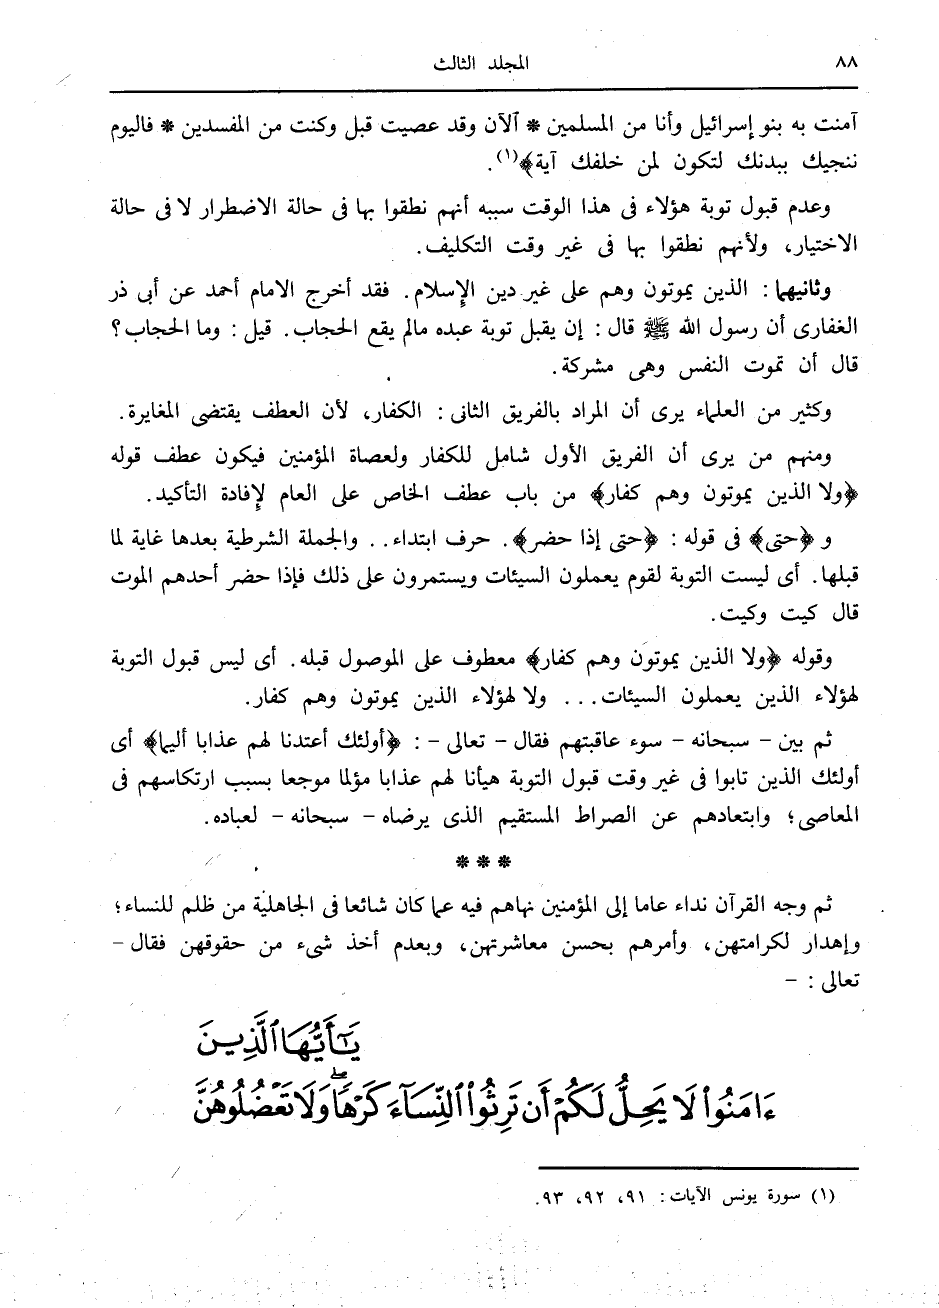 ٨٨ المجلد الثالث
آمنت به بنو إسرائيل وأنا من المسلمين * آلآن وقد عصيت قبل وكنت من المفسدين * فاليوم
ننجيك ببدنك لتكون لمن خلفك آية﴾(١).
وعدم قبول توبة هؤلاء فى هذا الوقت سببه أنهم نطقوا بها فى حالة الاضطرار لا فى حالة
الاختيار، ولأنهم نطقوا بها فى غير وقت التكليف.
وثانيهما : الذين يموتون وهم على غير دين الإسلام. فقد أخرج الامام أحمد عن أبى ذر
الغفارى أن رسول الله ﷺ قال : إن يقبل توبة عبده مالم يقع الحجاب. قيل : وما الحجاب؟
قال أن تموت النفس وهى مشركة.
وكثير من العلماء يرى أن المراد بالفريق الثانى : الكفار، لأن العطف يقتضى المغايرة.
ومنهم من يرى أن الفريق الأول شامل للكفار ولعصاة المؤمنين فيكون عطف قوله
﴿ولا الذين يموتون وهم كفار﴾ من باب عطف الخاص على العام لإفادة التأكيد.
و ﴿حتى﴾ فى قوله : ﴿حتى إذا حضر﴾. حرف ابتداء.. والجملة الشرطية بعدها غاية لما
قبلها. أى ليست التوبة لقوم يعملون السيئات ويستمرون على ذلك فإذا حضر أحدهم الموت
قال كيت وكيت.
وقوله ﴿ولا الذين يموتون وهم كفار﴾ معطوف على الموصول قبله. أى ليس قبول التوبة
لهؤلاء الذين يعملون السيئات... ولا لهؤلاء الذين يموتون وهم كفار.
ثم بين - سبحانه - سوء عاقبتهم فقال - تعالى - : ﴿أولئك أعتدنا لهم عذابا أليما﴾ أى
أولئك الذين تابوا فى غير وقت قبول التوبة هيأنا لهم عذابا مؤلما موجعا بسبب ارتكاسهم فى
المعاصى؛ وابتعادهم عن الصراط المستقيم الذى يرضاه - سبحانه - لعباده.
***
ثم وجه القرآن نداء عاما إلى المؤمنين نهاهم فيه عما كان شائعا فى الجاهلية من ظلم للنساء؛
وإهدار لكرامتهن، وأمرهم بحسن معاشرتهن، وبعدم أخذ شىء من حقوقهن فقال -
تعالى : -
يَٰٓأَيُّهَا ٱلَّذِينَ
ءَامَنُوا۟ لَا يَحِلُّ لَكُمْ أَن تَرِثُوا۟ ٱلنِّسَآءَ كَرْهًا ۖ وَلَا تَعْضُلُوهُنَّ
(١) سورة يونس الآيات : ٩١، ٩٢، ٩٣.